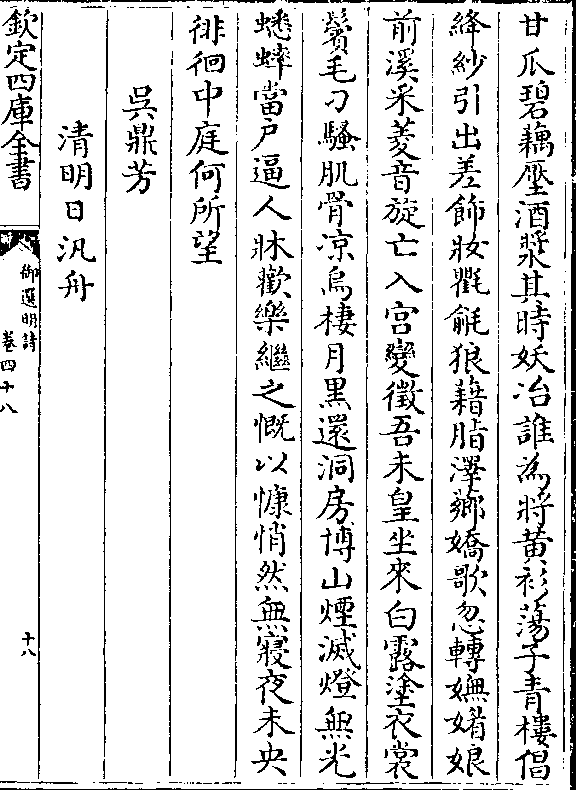 甘瓜碧藕壓酒漿其時妖冶誰為將黄衫蕩子青樓倡
絳紗引出差飾妝氍毹狼藉脂澤薌嬌歌忽轉嫵媚娘
前溪采菱音旋亡入宫變徵吾未皇坐來白露塗衣裳
鬢毛刁騷肌骨凉烏棲月黒還洞房博山煙滅燈無光
蟋蟀當户逼人牀歡樂繼之慨以慷悄然無寢夜未央
徘徊中庭何所望
吳鼎芳
清明日汎舟
欽定四庫全書
御選明詩
卷四十八
十八